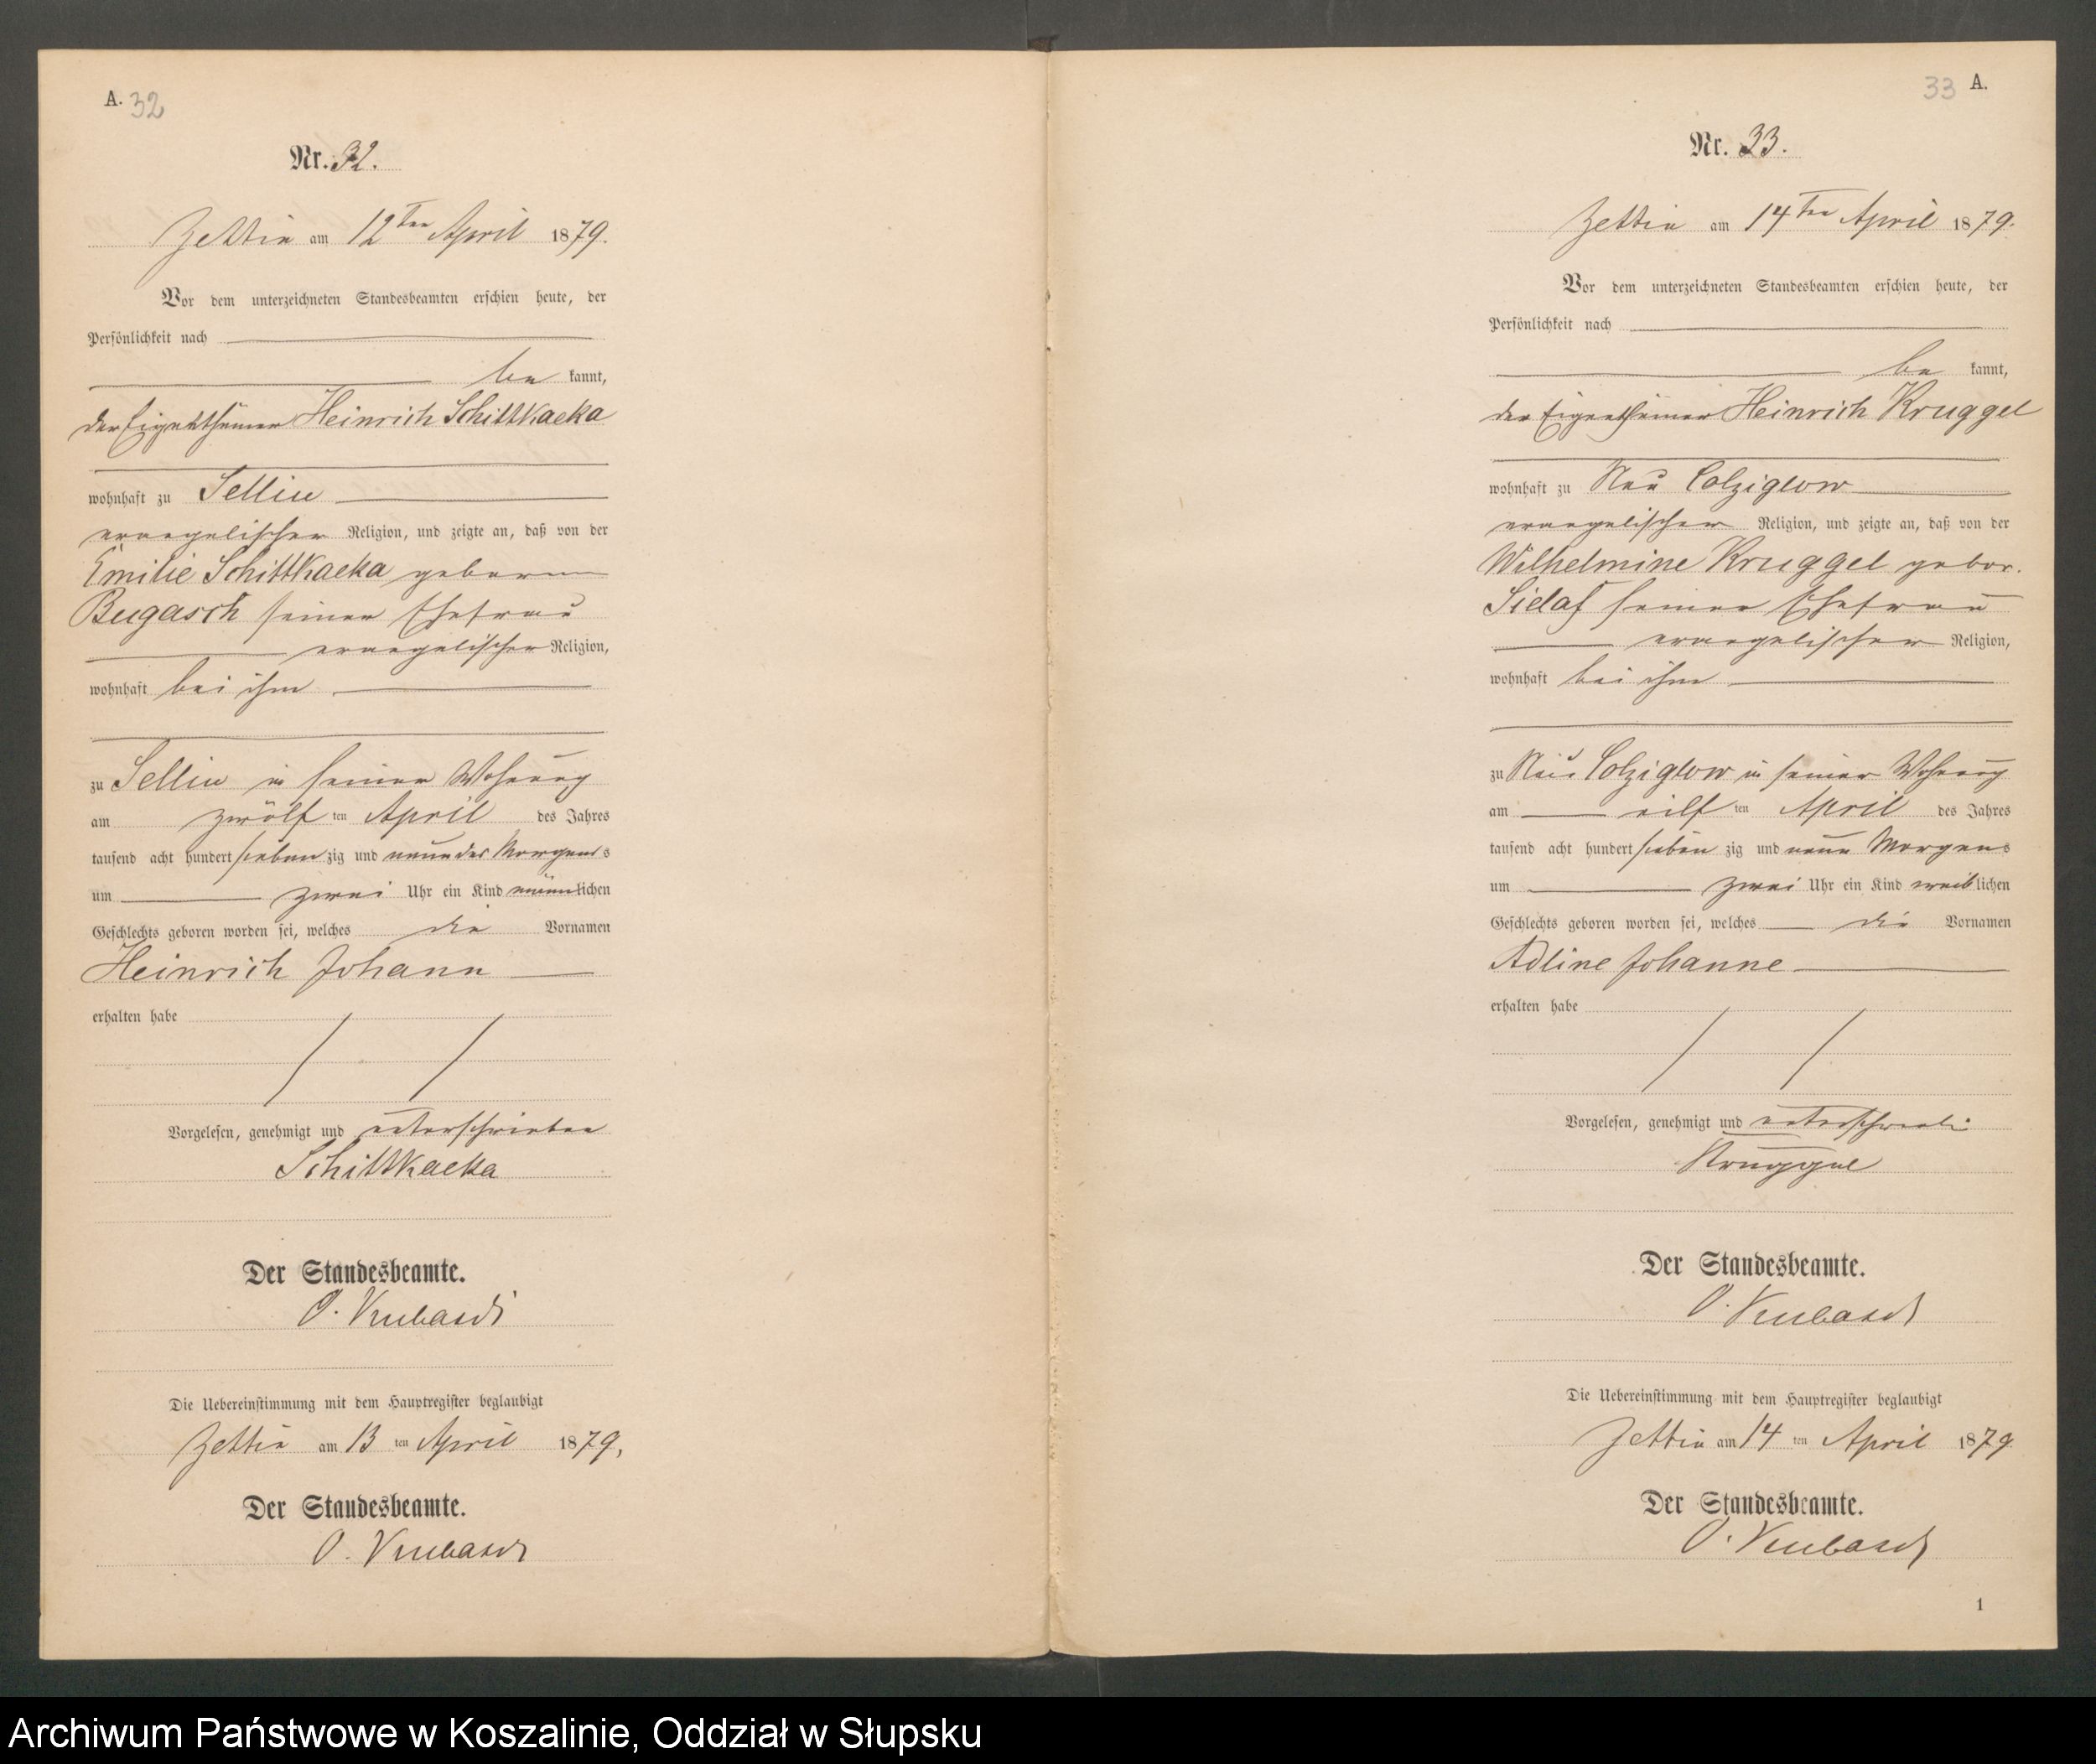 A. 32
Nr. 32.
Zettin am 12ten April 1879.
Vor dem unterzeichneten Standesbeamten erschien heute, der
Persönlichkeit nach
be kannt,
der Eigenthümer Heinrich Schittkacka
wohnhaft zu Sellin
evangelischer Religion, und zeigte an, daß von der
Emilie Schittkacka geborene
Bugasch seiner Ehefrau
evangelischer Religion,
wohnhaft bei ihm
zu Sellin in seiner Wohnung
am zwölf ten April des Jahres
tausend acht hundert sieben zig und neun des Morgens
um zwei Uhr ein Kind männlichen
Geschlechts geboren worden sei, welches die Vornamen
Heinrich Johann
erhalten habe
Vorgelesen, genehmigt und unterschrieben
Schittkacka
Der Standesbeamte.
O.
Die Uebereinstimmung mit dem Hauptregister beglaubigt
Zettin am 13 ten April 1879,
Der Standesbeamte.
O.
33 A.
Nr. 33.
Zettin am 14ten April 1879.
Vor dem unterzeichneten Standesbeamten erschien heute, der
Persönlichkeit nach
be kannt,
der Eigenthümer Heinrich Kruggel
wohnhaft zu Neu Colziglow
evangelischer Religion, und zeigte an, daß von der
Wilhelmine Kruggel gebor.
seiner Ehefrau
evangelischer Religion,
wohnhaft bei ihm
zu Neu Colziglow in seiner Wohnung
am eilf ten April des Jahres
tausend acht hundert sieben zig und neun Morgens
um zwei Uhr ein Kind weiblichen
Geschlechts geboren worden sei, welches die Vornamen
Adline Johanne
erhalten habe
Vorgelesen, genehmigt und
Kruggel
Der Standesbeamte.
O.
Die Uebereinstimmung mit dem Hauptregister beglaubigt
Zettin am 14 ten April 1879
Der Standesbeamte.
O.
1
Archiwum Państwowe w Koszalinie, Oddział w Słupsku